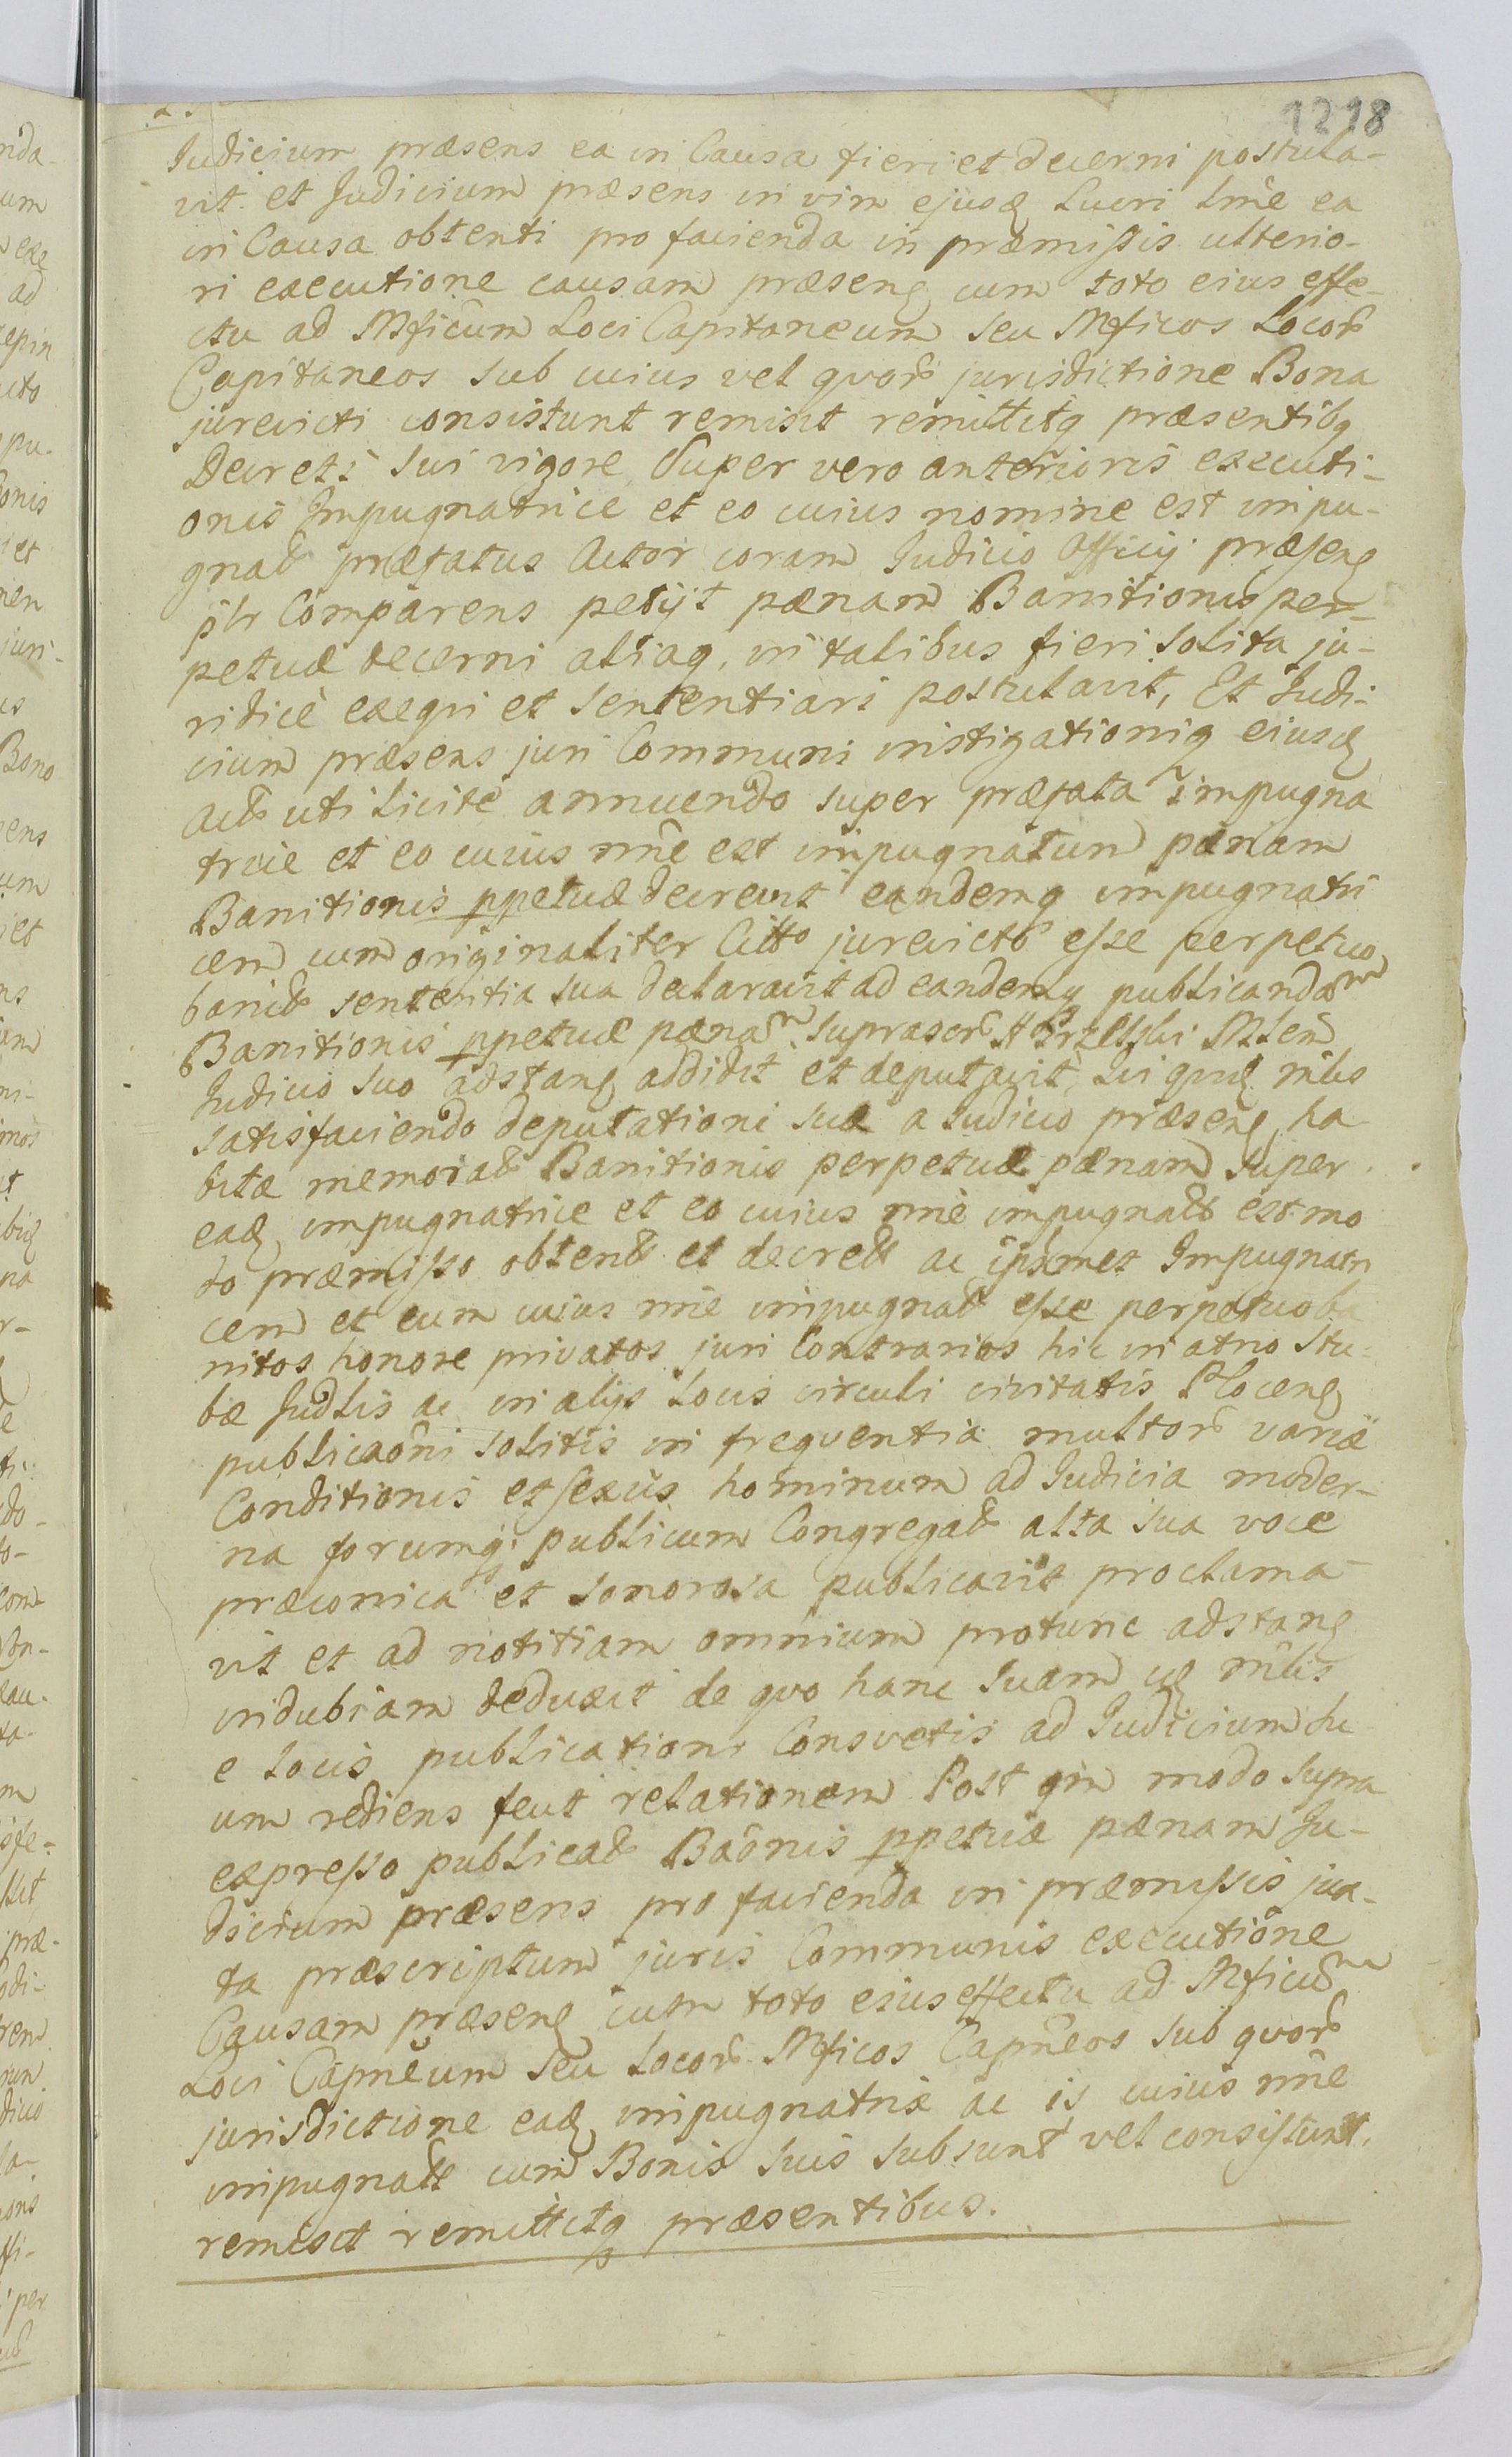 1218
Judicium præsens ea in Causa fieri et decerni postula-
vit et Judicium præsens in vim ejusd Lucri tme ea
in Causa obtenti pro facienda in præmissis ulterio-
ri executione causam præsens cum toto eius effe-
ctu ad Mficum Loci Capitaneum seu Mficos Locor
Capitaneos sub cuius vel quor jurisdictione Bona
jurevicti consistunt remisit remittitq præsentibq
Decreti sui vigore Super vero anterioris executi-
onis Impugnatrice et eo cuius nomine est impu-
gnat præfatus Actor coram Judicio Officij præsens
plr Comparens petijt pænam Banitionis per-
petuæ decerni aliaq. in talibus fieri solita ju-
ridicè exeqvi et sententiari postulavit, Et Judi-
cium præsens juri Communi instigationiq eiusd
Act uti licitè annuendo super præfata impugna
trice et eo cuius nne est impugnatum pænam
Banitionis ppetuæ decrevit eandemq impugnatri
cem cum originaliter Citto jurevicto esse perpetuo
banit sententia sua declaravit ad eandemq publicandam
Banitionis ppetuæ pænam suprascr Mlem
Judicio suo adstans addidit et deputavit qui quid mlis
satisfaciendo deputationi suæ a Judicio præsens ha
bitæ memorat Banitionis perpetuæ pænam super
ead impugnatrice et eo cuius nne impugnatt est mo
do præmisso obtent et decret ac ipsmet Impugnatri
cem et eum cuius nne impugnat esse perpetuo ba
nitos honore privatos juri Contrarios hic in atrio Stu-
bæ Judlis ac in alijs locis circuli civitatis Plocens
publicaoni solitis in freqventia multor variæ
Conditionis et sexus hominum ad Judicia moder-
na forumq publicum Congregat alta sua voce
præconica et sonorosa publicavit proclama-
vit et ad notitiam omnium protunc adstans
indubiam deduxit de qvo hanc suam id mlis
e locis publicationi Consvetis ad Judicium hu
um rediens fecit relationem Post qm modo supra
expresso publicat Baonis ppetuæ pænam Ju-
dicium præsens pro facienda in præmissis jux-
ta præscriptum juris Communis executione
Causam præsens cum toto eius effectu ad Mficum
Loci Capneum seu Locor Mficos Capneos sub qvor
jurisdictione ead impugnatrix ac is cuius nne
impugnatt cum Bonis suis subsunt vel consistunt,
remisit remittitq præsentibus.